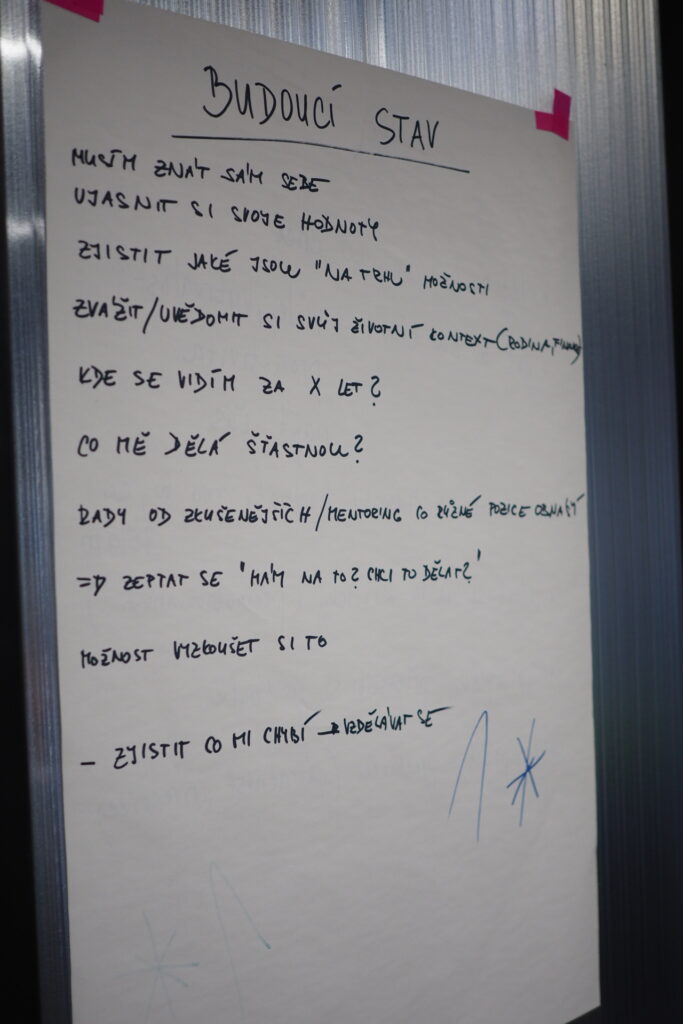 BUDOUCÍ STAV
MUSÍM ZNÁT SÁM SEBE
UJASNIT SI SVOJE HODNOTY
ZJISTIT JAKÉ JSOU "NA TRHU" MOŽNOSTI
ZVÁŽIT/UVĚDOMIT SI SVŮJ ŽIVOTNÍ KONTEXT (RODINA, FINANCE)
KDE SE VIDÍM ZA X LET?
CO MĚ DĚLÁ ŠŤASTNOU?
RADY OD ZKUŠENĚJŠÍCH/MENTORING CO RŮZNÉ POZICE OBNÁŠÍ
=> ZEPTAT SE "MÁM NA TO? CHCI TO DĚLAT?"
MOŽNOST VYZKOUŠET SI TO
- ZJISTIT CO MI CHYBÍ → VZDĚLÁVAT SE